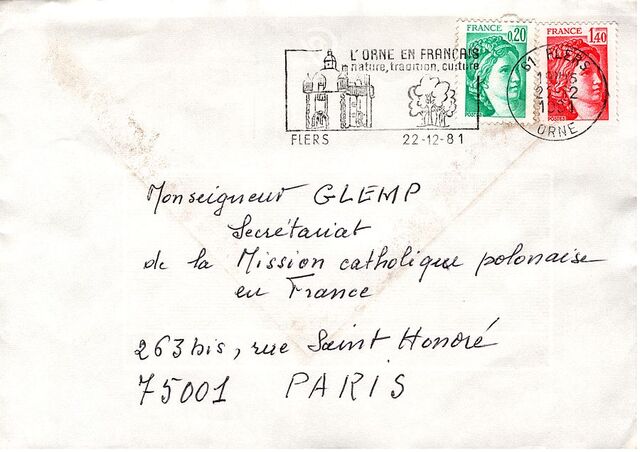 L'ORNE EN FRANÇAIS
nature, tradition, culture
FLERS
22-12-81
FRANCE
0,20
FRANCE
1,40
61 FLERS
ORNE
Monseigneur GLEMP
Secrétariat
de la Mission catholique polonaise
en France
263 bis, rue Saint Honoré
75001 PARIS